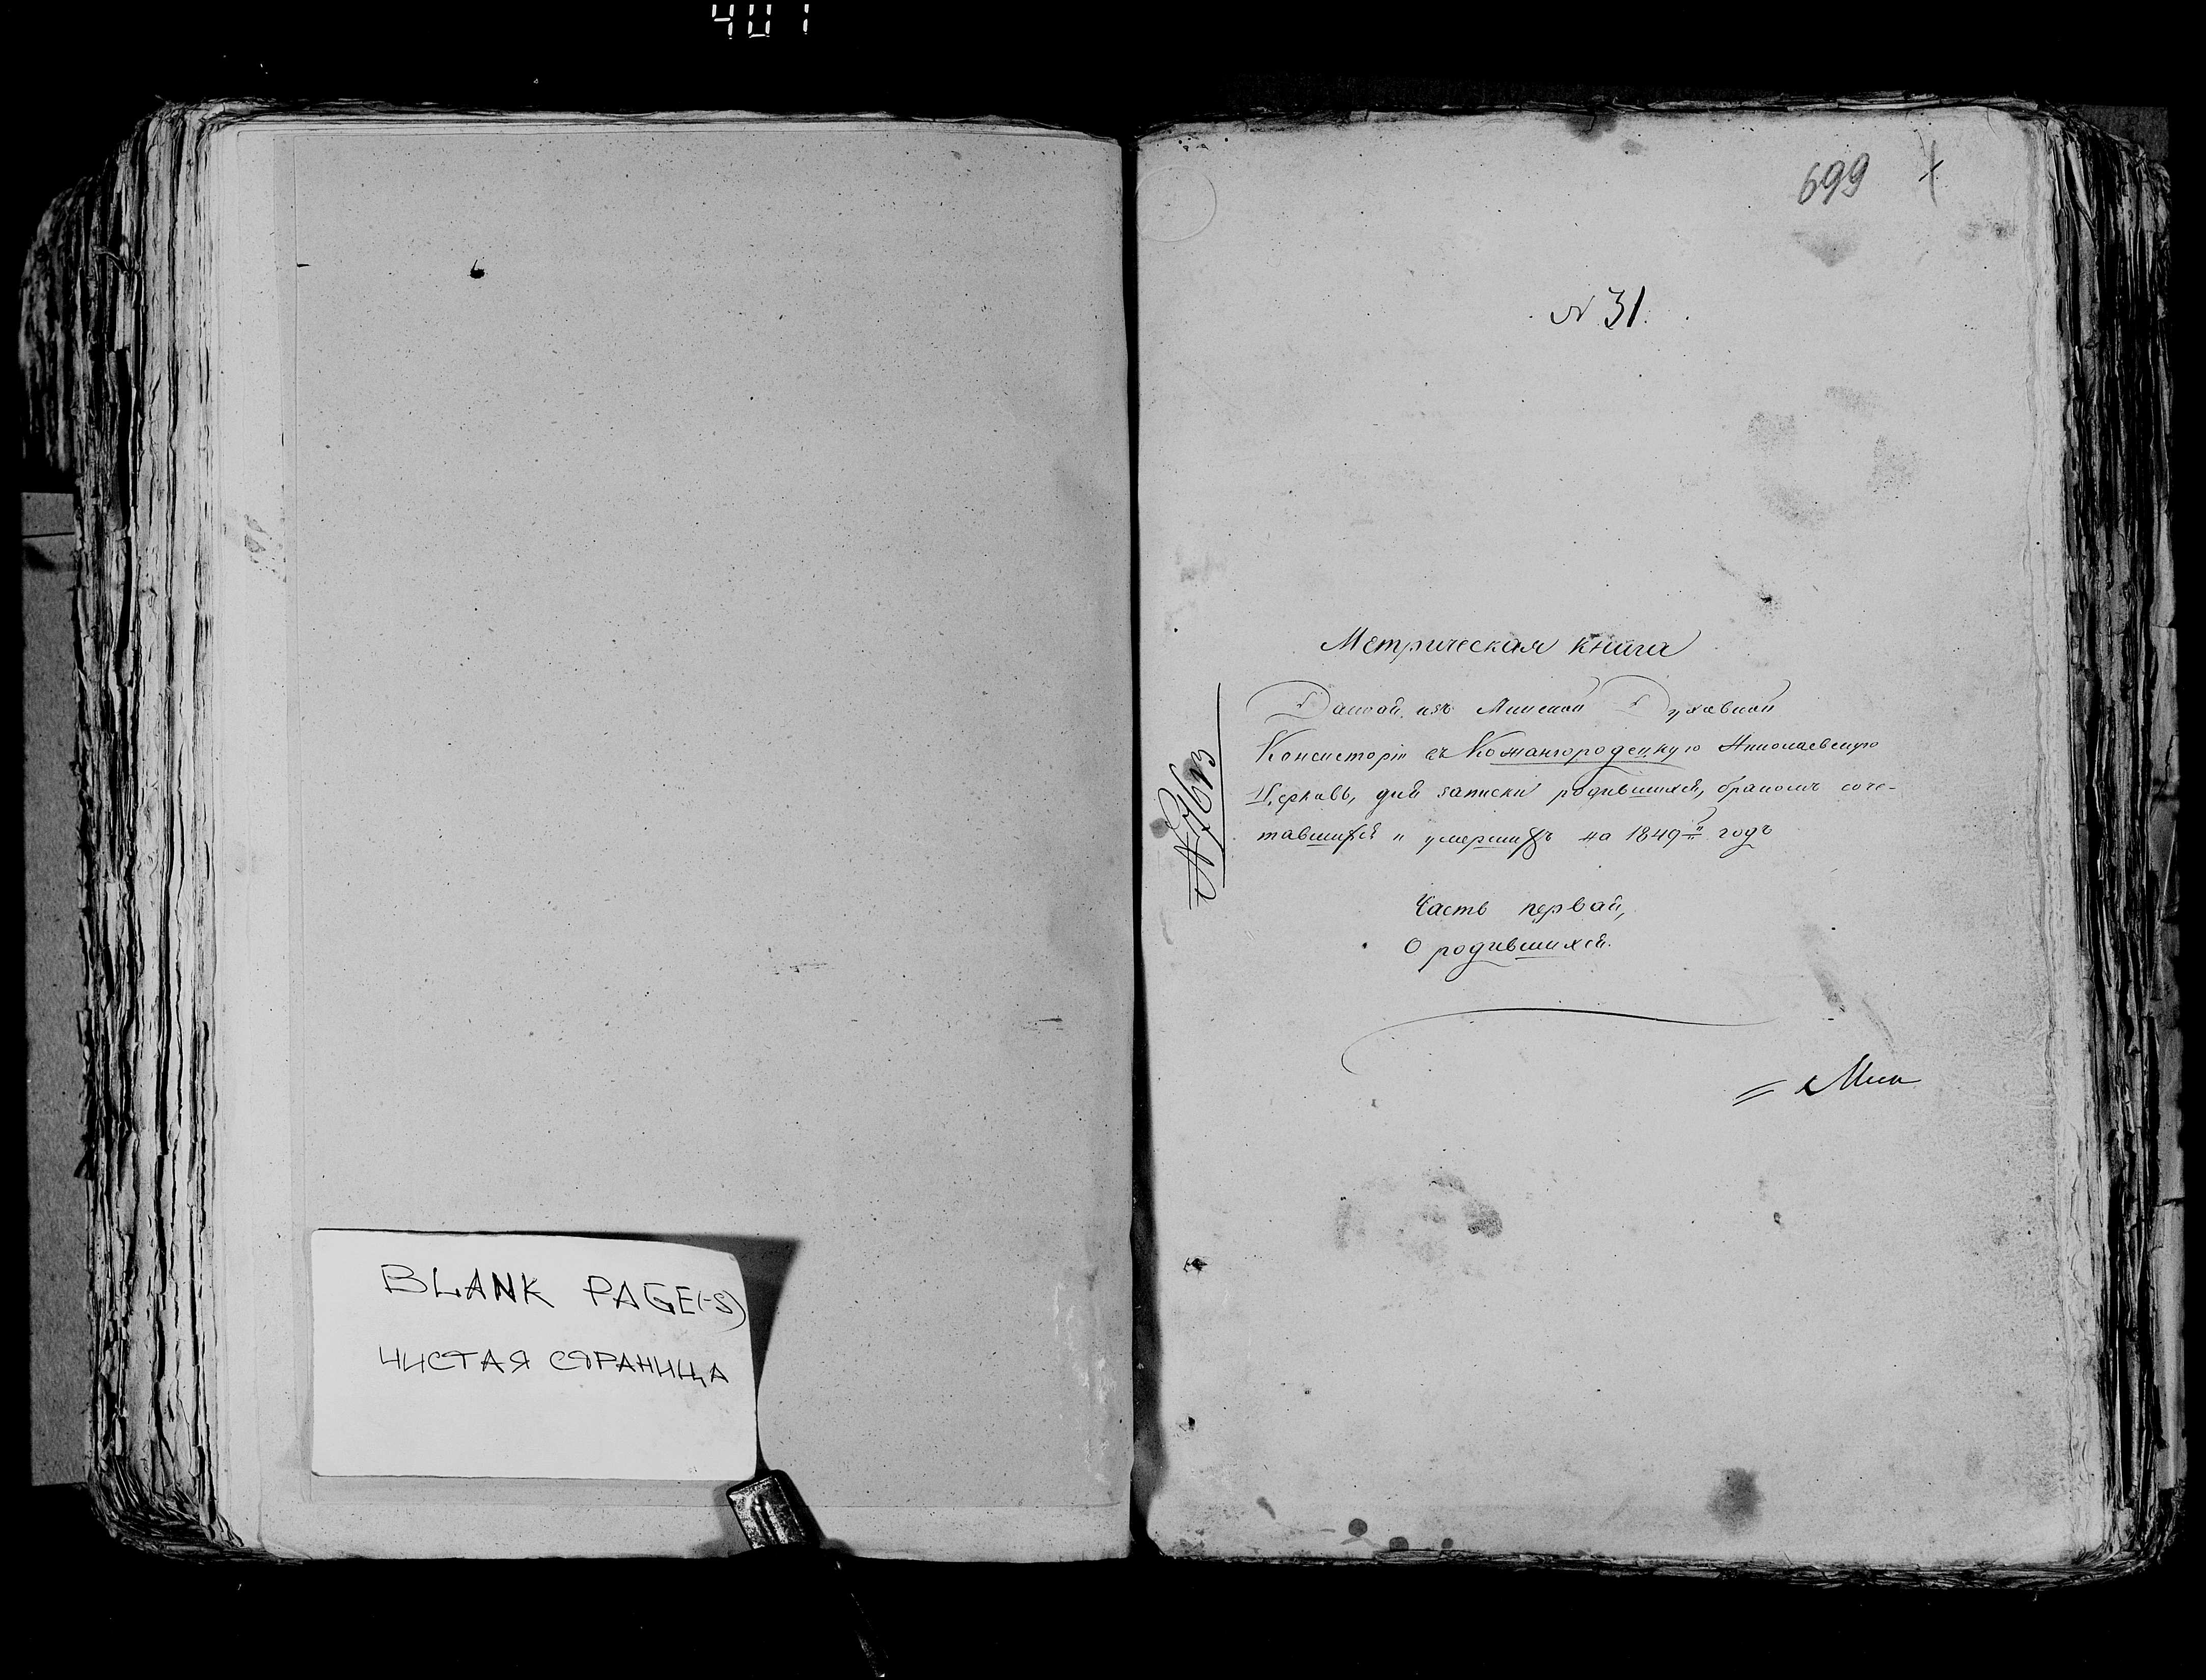 401
BLANK PAGE(-S)
ЧИСТАЯ СТРАНИЦА
699
N 31.
Метрическая книга
Данная изъ Минской Духовной
Консисторіи въ Кожангородецкую Николаевскую
Церковь, для записки родившихся, бракомъ соче-
тавшихся и умершихъ на 1849й годъ
Часть первая,
О родившихся.